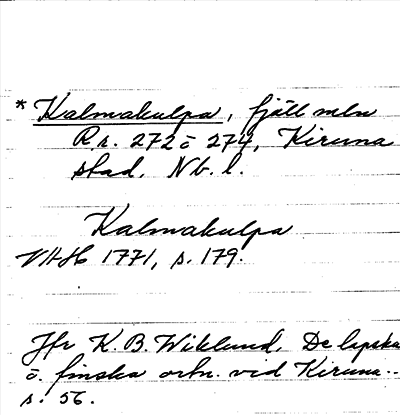 * Kalmakulpa, fjäll mln
Rr. 272 o 274, Kiruna
stad. Nb. l.
Kalmakulpa
VHH 1771, s. 179.
Jfr K. B. Wiklund, De lapska
o. finska ortn. vid Kiruna..
s. 56.